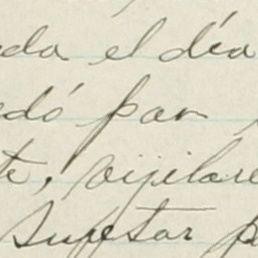 da el día
edó par
te, vijilare
Sujetar p